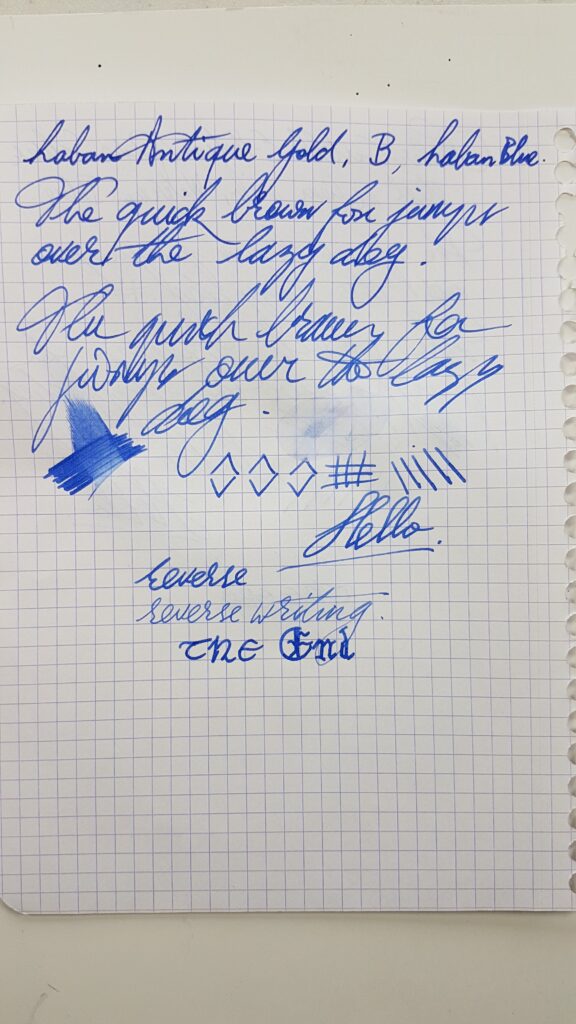 Laban Antique Gold, B, Laban Blue.
The quick brown fox jumps
over the lazy dog.
The quick brown fox
jumps over the lazy
dog.
Hello.
reverse
reverse writing.
The End